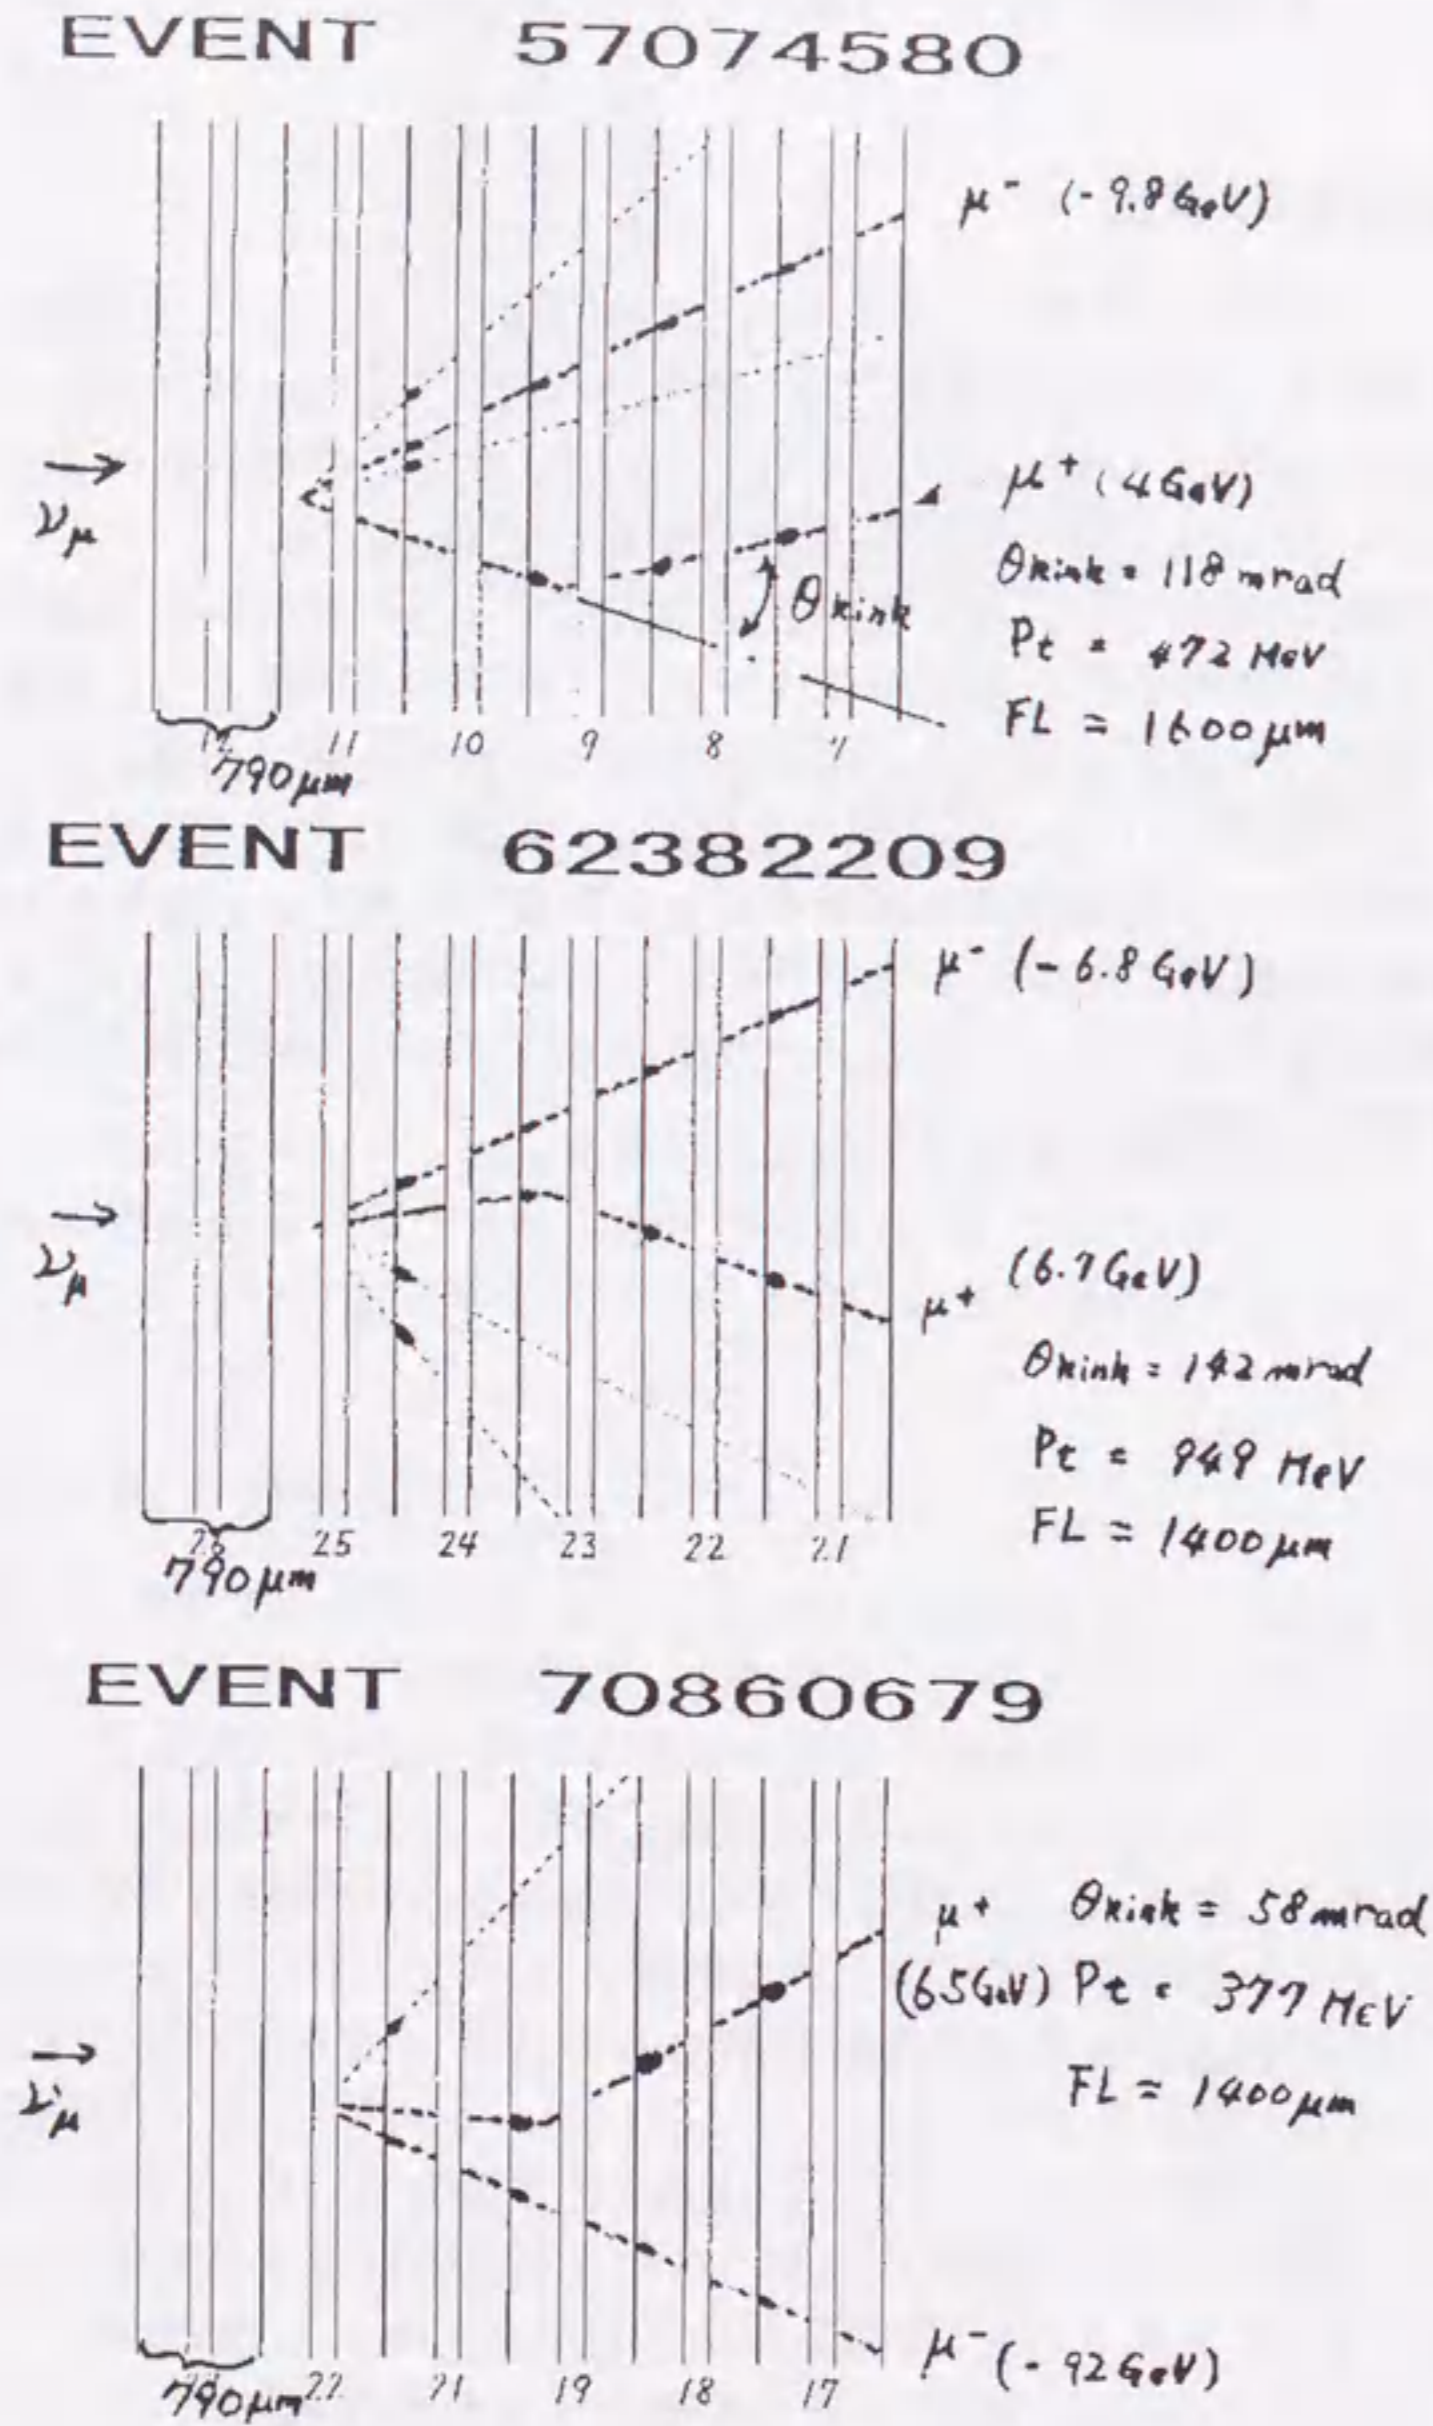 EVENT 57074580
μ⁻ (-9.8 GeV)
→
νμ
μ⁺ (4 GeV)
θkink = 118 mrad
θkink
Pt = 472 MeV
FL = 1600 μm
11 10 9 8 7
790 μm
EVENT 62382209
μ⁻ (-6.8 GeV)
→
νμ
(6.7 GeV)
μ⁺
θkink = 142 mrad
Pt = 949 MeV
FL = 1400 μm
25 24 23 22 21
790 μm
EVENT 70860679
μ⁺ θkink = 58 mrad
Pt = 377 MeV
→
νμ
FL = 1400 μm
22 21 19 18 17
790 μm
μ⁻